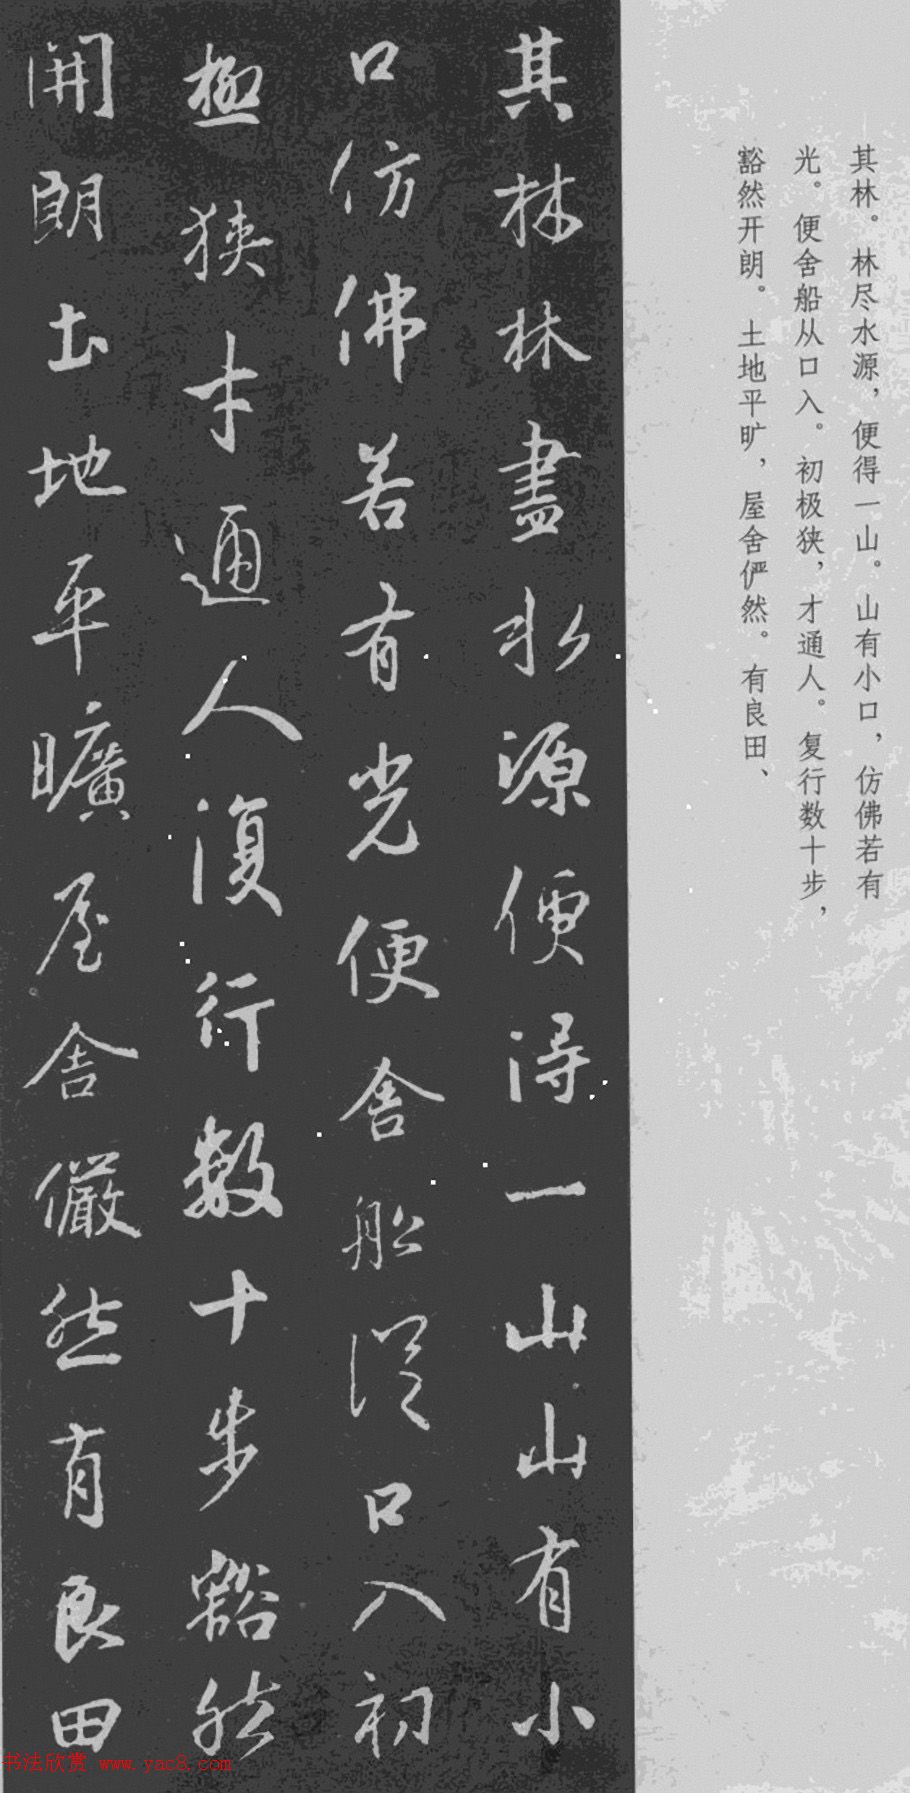 其林。林尽水源，便得一山。山有小口，仿佛若有
光。便舍船从口入。初极狭，才通人。复行数十步，
豁然开朗。土地平旷，屋舍俨然。有良田、
其林林盡水源便得一山山有小
口仿佛若有光便舍船從口入初
極狹才通人復行數十步豁然
開朗土地平曠屋舍儼然有良田
书法欣赏 www.yac8.com